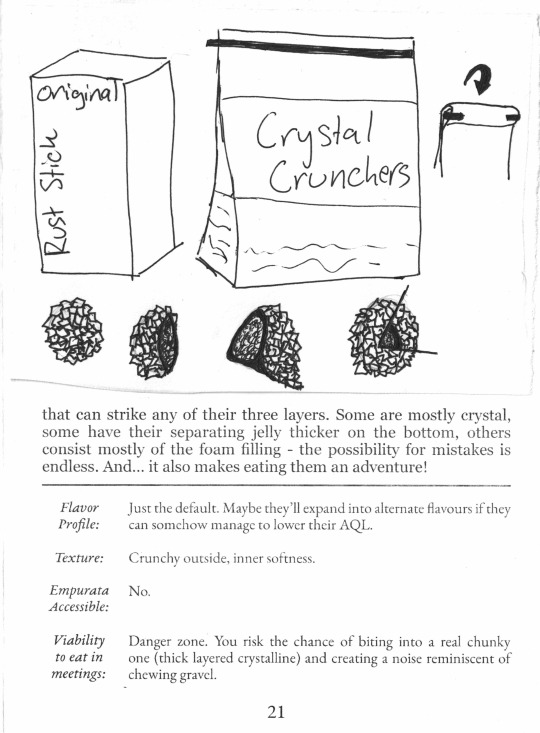 Original
Rust Stick
Crystal
Crunchers
that can strike any of their three layers. Some are mostly crystal,
some have their separating jelly thicker on the bottom, others
consist mostly of the foam filling - the possibility for mistakes is
endless. And... it also makes eating them an adventure!
Flavor Profile: Just the default. Maybe they'll expand into alternate flavours if they
can somehow manage to lower their AQL.
Texture: Crunchy outside, inner softness.
Empurata Accessible: No.
Viability to eat in meetings: Danger zone. You risk the chance of biting into a real chunky
one (thick layered crystalline) and creating a noise reminiscent of
chewing gravel.
21